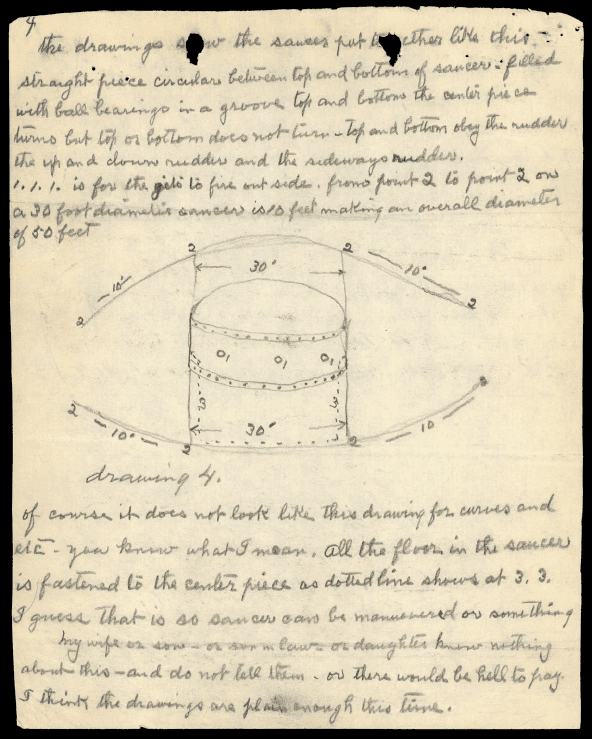 4
the drawings show the saucer put together like this -
straight piece circular between top and bottom of saucer - filled
with ball bearings in a groove top and bottom the center piece
turns but top or bottom does not turn - top and bottom obey the rudder
the up and down rudder and the sideways rudder.
1.1.1. is for the jets to fire out side. from point 2 to point 2 on
a 30 foot diameter saucer is 10 feet making an overall diameter
of 50 feet
2 2
30'
10' 10'
2 2
O1 O1 O1
3 3
2 2
30'
10' 10
2 2
drawing 4.
of course it does not look like this drawing for curves and
etc - you know what I mean. All the floor in the saucer
is fastened to the center piece as dotted line shows at 3. 3.
I guess that is so saucer can be manuevered or something
my wife or son - or son in law - or daughter know nothing
about this - and do not tell them - or there would be hell to pay.
I think the drawings are plain enough this time.